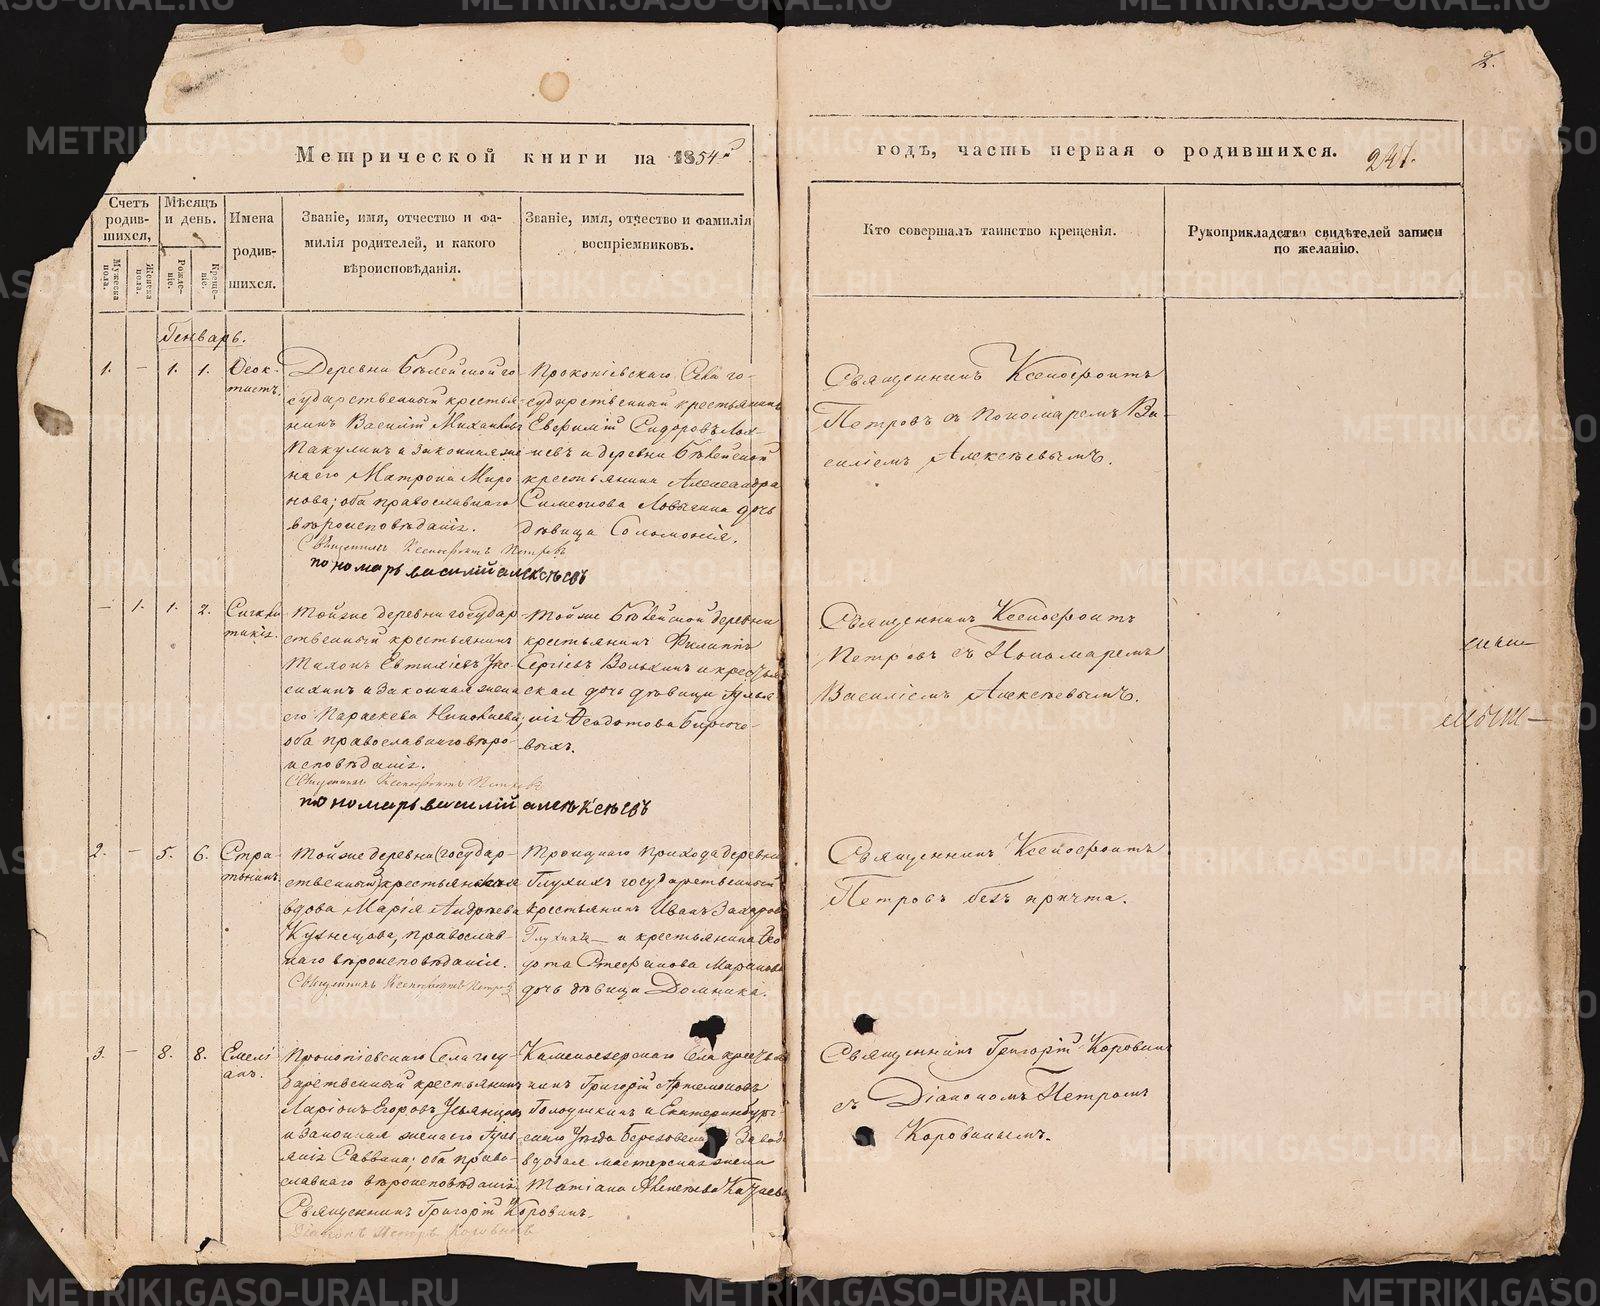 2.
Метрической книги на 1854й
годъ, часть первая о родившихся. 247.
Счетъ родив-
шихся,
Мужеска пола.
Женска пола.
Мѣсяцъ и день.
Рожде-
ніе.
Креще-
ніе.
Имена
родив-
шихся.
Званіе, имя, отчество и фа-
милія родителей, и какого
вѣроисповѣданія.
Званіе, имя, отчество и фамилія
воспріемниковъ.
Кто совершалъ таинство крещенія.
Рукоприкладство свидѣтелей записи
по желанію.
Генварь.
1. - 1. 1.
Ѳеок-
тистъ.
Деревни Бѣлейской го-
сударственный крестья-
нинъ Василій Михаиловъ
Пакулинъ и законная же-
на его Матрона Миро
нова; оба православнаго
вѣроисповѣданія.
Священникъ Ксенофонтъ Петровъ
пономарь василій алексѣевъ
Прокопіевскаго Села го-
сударственный крестьянинъ
Евѳимій Сидоровъ
и деревни Бѣлейской
крестьянина Александра
Симеонова дочь
дѣвица Соломонія.
Священникъ Ксенофонтъ
Петровъ съ Пономаремъ Ва-
силіемъ Алексѣевымъ.
- 1. 1. 2.
Сигкли-
тикія.
Тойже деревни государ
ственный крестьянинъ
Тихонъ Евтихіевъ
и законная жена
его Параскева Николаева;
оба православнаго вѣро-
исповѣданія.
Священникъ Ксенофонтъ Петровъ
пономарь василій алекѣсѣевъ
Тойже Бѣлейской деревни
крестьянинъ Филиппъ
Сергіевъ и крестьян
ская дочь дѣвица Іульа
нія Ѳеодотова
выхъ.
Священникъ Ксенофонтъ
Петровъ съ Пономаремъ
Василіемъ Алексѣевымъ.
2. - 5. 6.
Стра-
тникъ.
Тойже деревни (государ-
ственный) крестьянская
вдова Марія Андрѣева
Кузнецова, православ-
наго вѣроисповѣданія.
Священникъ Ксенофонтъ Петровъ
Троицкаго прихода деревни
Глухихъ государственный
крестьянинъ Иванъ Захаровъ
Глухихъ и крестьянина Ѳео
дота Стефанова
дочь дѣвица Домника.
Священникъ Ксенофонтъ
Петровъ безъ причта.
3. - 8. 8.
Емелі
анъ.
Прокопіевскаго Села госу-
дарственный крестьянинъ
Ларіонъ Егоровъ Усьянцовъ
и законная жена его Іулі
анія Саввина; оба право-
славнаго вѣроисповѣданія.
Священникъ Григорій Коровинъ
Діаконъ Петръ Коровинъ
Каменоозерскаго Села крестья
нинъ Григорій Артемоновъ
Голоушкинъ и Екатеринбург-
скаго Уѣзда Березовскаго Завода
вдовая мастерская жена
Татіана
Священникъ Григорій Коровинъ
съ Діакономъ Петромъ
Коровинымъ.